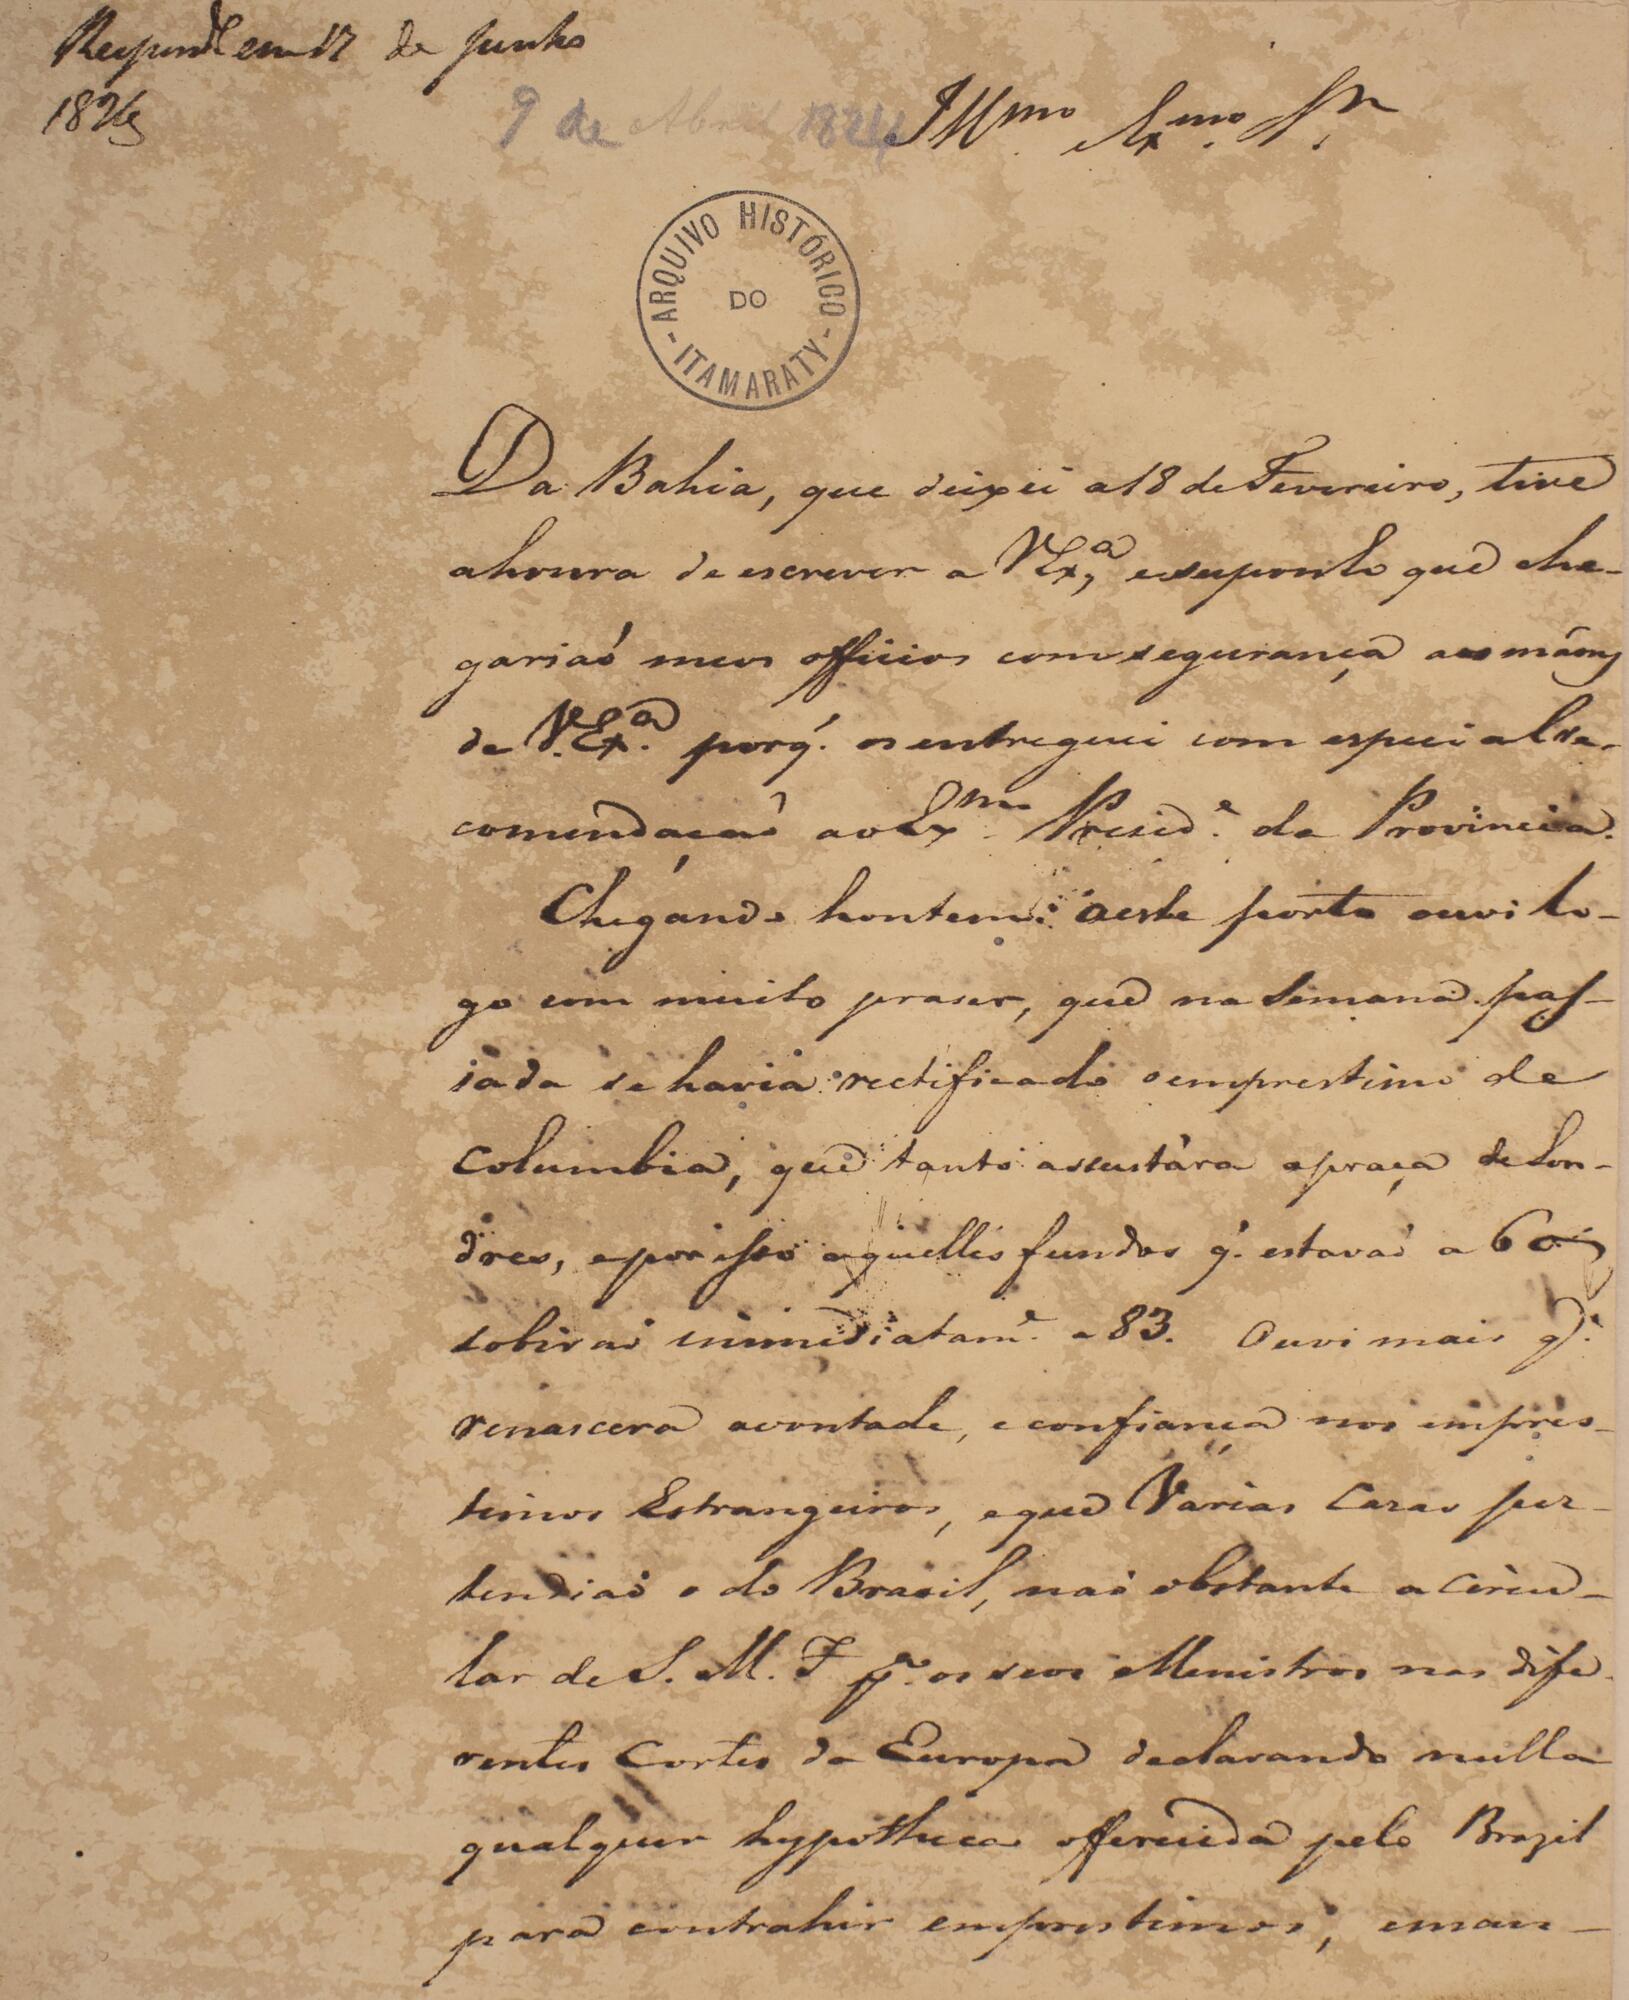 Respond.e em 17 de Junho
1824
9 de Abril 1824
Illmo. Exmo. Snr.
ARQUIVO HISTÓRICO
DO
- ITAMARATY -
Da Bahia, que deixei a 18 de Fevereiro, tive
a honra de escrever a V Exª, e supponho que che-
gariaõ meus officios com segurança as mãos
de V. Exª. porq̃. os entreguei com especial re-
comendaçaõ ao Exmo. Presid.e da Provincia.
Chegando hontem a este porto ouvi lo-
go com muito praser, que na semana pas-
sada se havia rectificado o emprestimo de
Columbia, que tanto assustára a praça de Lon-
dres, e por isso aquelles fundos q̃. estavaõ a 60
sobiraõ immediatam.e a 83. Ouvi mais q̃.
renascera a vontade, e confiança nos empres-
timos Estrangeiros, e que Varias Casas per-
tendiaõ o do Brasil, naõ obstante a circu-
lar de S. M. F pª. os seus Ministros nas dife-
rentes Cortes da Europa declarando nulla
qualquer hypotheca offerecida pelo Brazil
para contrahir emprestimos; e man-